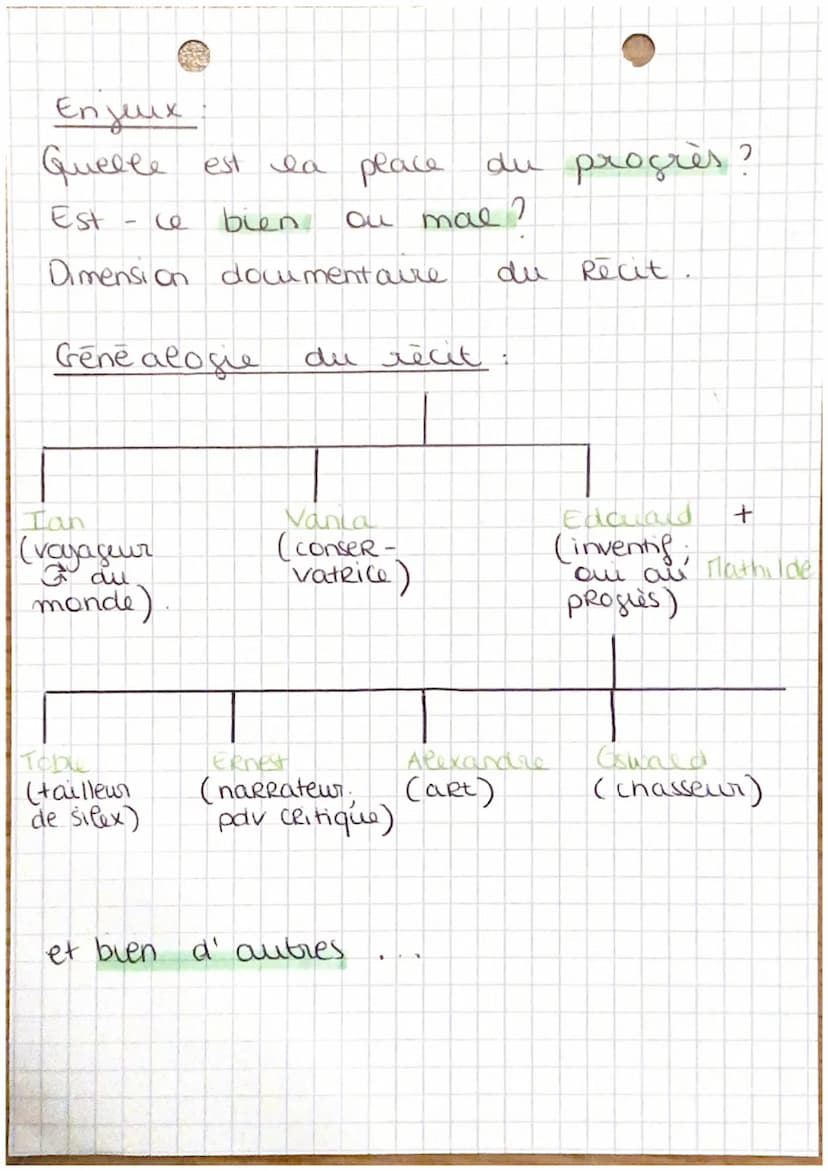 Enjeux :
Quelle est la place du progrès ?
Est-ce bien ou mal ?
Dimension documentaire du Récit.
Généalogie du récit :
Ian Vania Edouard +
(voyageur (conser- (inventif,
du vatrice) oui au Mathilde
monde). progrès)
Tobie Ernest Alexandre Oswald
(tailleur (narrateur, (art) (chasseur)
de silex) pdv critique)
et bien d'autres ...